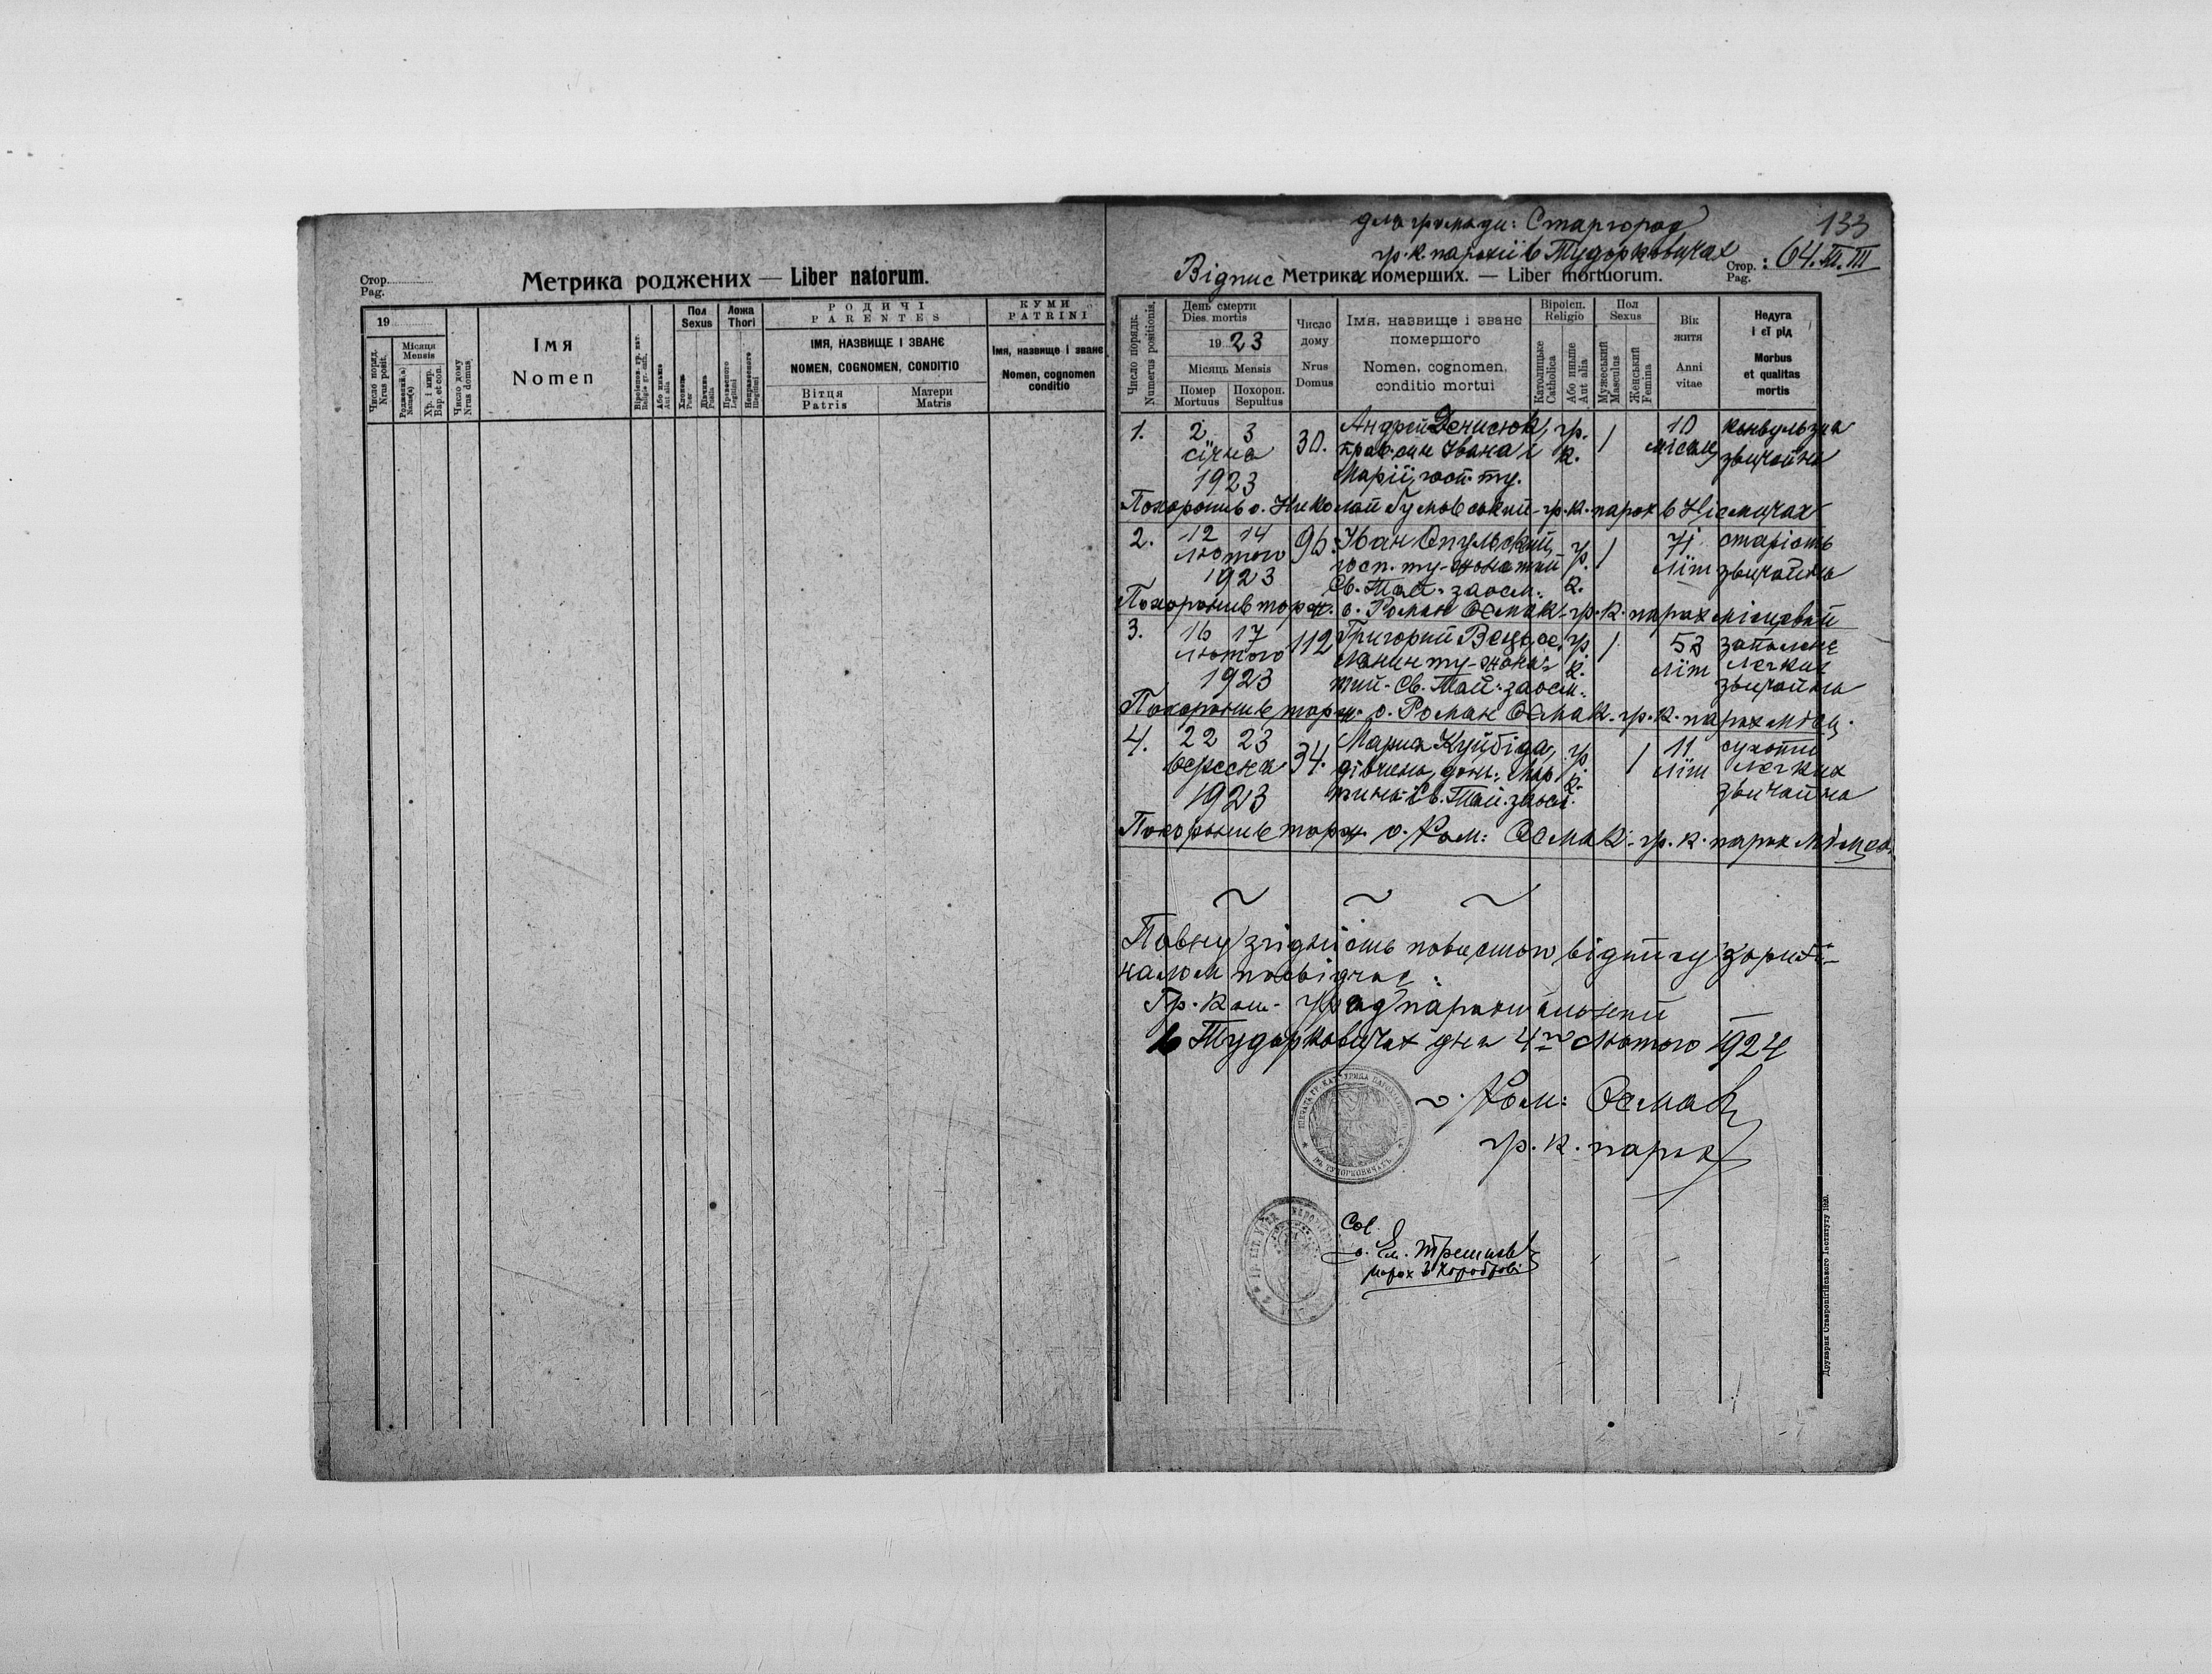 Стор.
Pag.
Метрика роджених — Liber natorum.
19
Число поряд.
Nrus posit.
Місяця
Mensis
Роджений(а)
Natus(a)
Хр. і мир.
Bap. et con.
Число дому
Nrus domus
Імя
Nomen
Або иньше
Aut alia
Пол
Sexus
Хлопець
Puer
Дівчина
Puella
Ложа
Thori
Правесного
Legitimi
Неправесного
Illegitimi
РОДИЧІ
PARENTES
ІМЯ, НАЗВИЩЕ І ЗВАНЄ
NOMEN, COGNOMEN, CONDITIO
Вітця
Patris
Матери
Matris
КУМИ
PATRINI
Імя, назвище і званє
Nomen, cognomen
conditio
для громади: Старгород
133
гр. к. парохії в Тудорковичах
Відпис Метрики померших. — Liber mortuorum.
Стор.
Pag. : 64. III
Число порядк.
Numerus positionis.
День смерти
Dies mortis
1923
Місяць Mensis
Помер
Mortuus
Похорон.
Sepultus
Число
дому
Nrus
Domus
Імя, назвище і званє
помершого
Nomen, cognomen,
conditio mortui
Віроісп.
Religio
Католицьке
Catholica
Або иньше
Aut alia
Пол
Sexus
Мужеський
Masculus
Женський
Femina
Вік
житя
Anni
vitae
Недуга
і єї рід
Morbus
et qualitas
mortis
1. 2 3 30. Андрей Денисюк, гр. 1 10 конвульзия
січня прав. син Івана і к. місяц звичайна
1923 Марії, госп. ту.
Похоронив о. Николай гр. к. парох в Нісмичах
2. 12 14 96. Іван Опульский, гр. 1 71 старість
лютого госп. ту - жонатий к. літ звичайна
1923 Св. Тай. заосм.
Похоронив торж. о. Роман Осмак гр. к. парох місцевий
3. 16 17 112 Григорий гр. 1 53 запаленє
лютого ту - жона- к. літ легких
1923 тий - Св. Тай. заосм. звичайна
Похоронив торж. о. Роман Осмак гр. к. парох місц.
4. 22 23 34. Мария Куйбіда, гр. 1 11 сухоти
вересня дівчина, донь. Мар к. літ легких
1923 тина Св. Тай. заосм. звичайна
Похоронив торж. о. Ром: Осмак гр. к. парох місцев.
Повну згідність повисшого відпису з оригі-
налом посвідчає:
Гр. Кат. Уряд парохияльний
в Тудорковичах дня 4го Лютого 1924
о. Ром: Осмак
гр. к. парох
Col.
о. Ем.
парох в Хороброві
Друкарня Ставропігійського Інституту 1920.